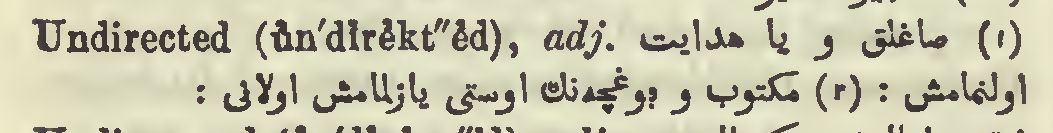 Undirected (ŭn′dĭrĕkt″ĕd), adj. (١) صاغلق و یا هدایت
اولنمامش : (٢) مكتوب و بوغچه‌نك اوستی یازلمامش اولانی :